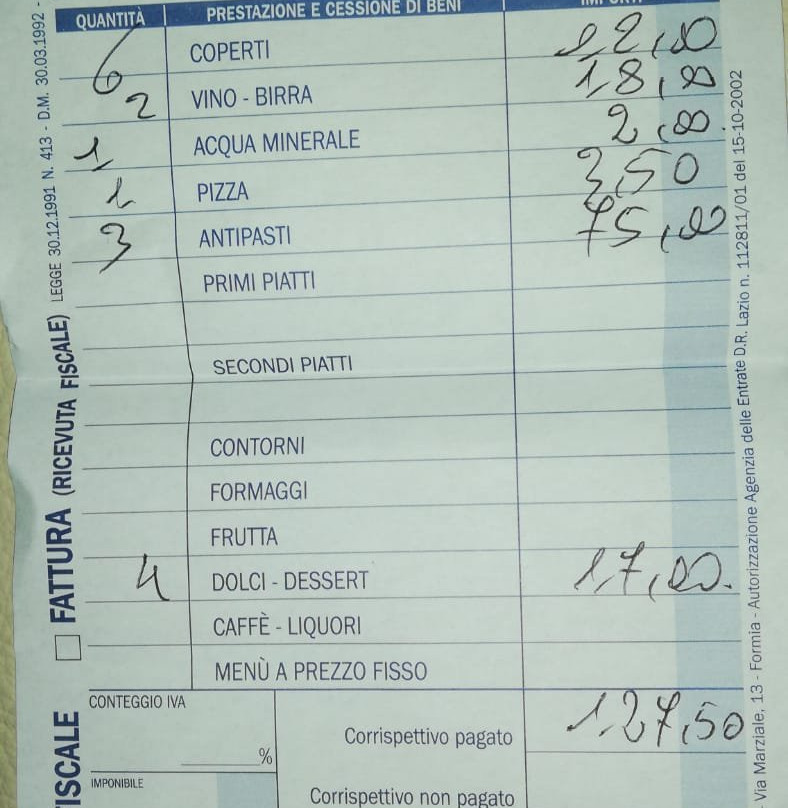 QUANTITÀ PRESTAZIONE E CESSIONE DI BENI
6 COPERTI 12,00
2 VINO - BIRRA 18,00
1 ACQUA MINERALE 2,00
1 PIZZA 3,50
3 ANTIPASTI 75,00
PRIMI PIATTI
SECONDI PIATTI
CONTORNI
FORMAGGI
FRUTTA
4 DOLCI - DESSERT 17,00.
CAFFÈ - LIQUORI
MENÙ A PREZZO FISSO
CONTEGGIO IVA
%
IMPONIBILE
Corrispettivo pagato 127,50
Corrispettivo non pagato
ISCALE
FATTURA (RICEVUTA FISCALE) LEGGE 30.12.1991 N. 413 - D.M. 30.03.1992 -
Via Marziale, 13 - Formia - Autorizzazione Agenzia delle Entrate D.R. Lazio n. 112811/01 del 15-10-2002